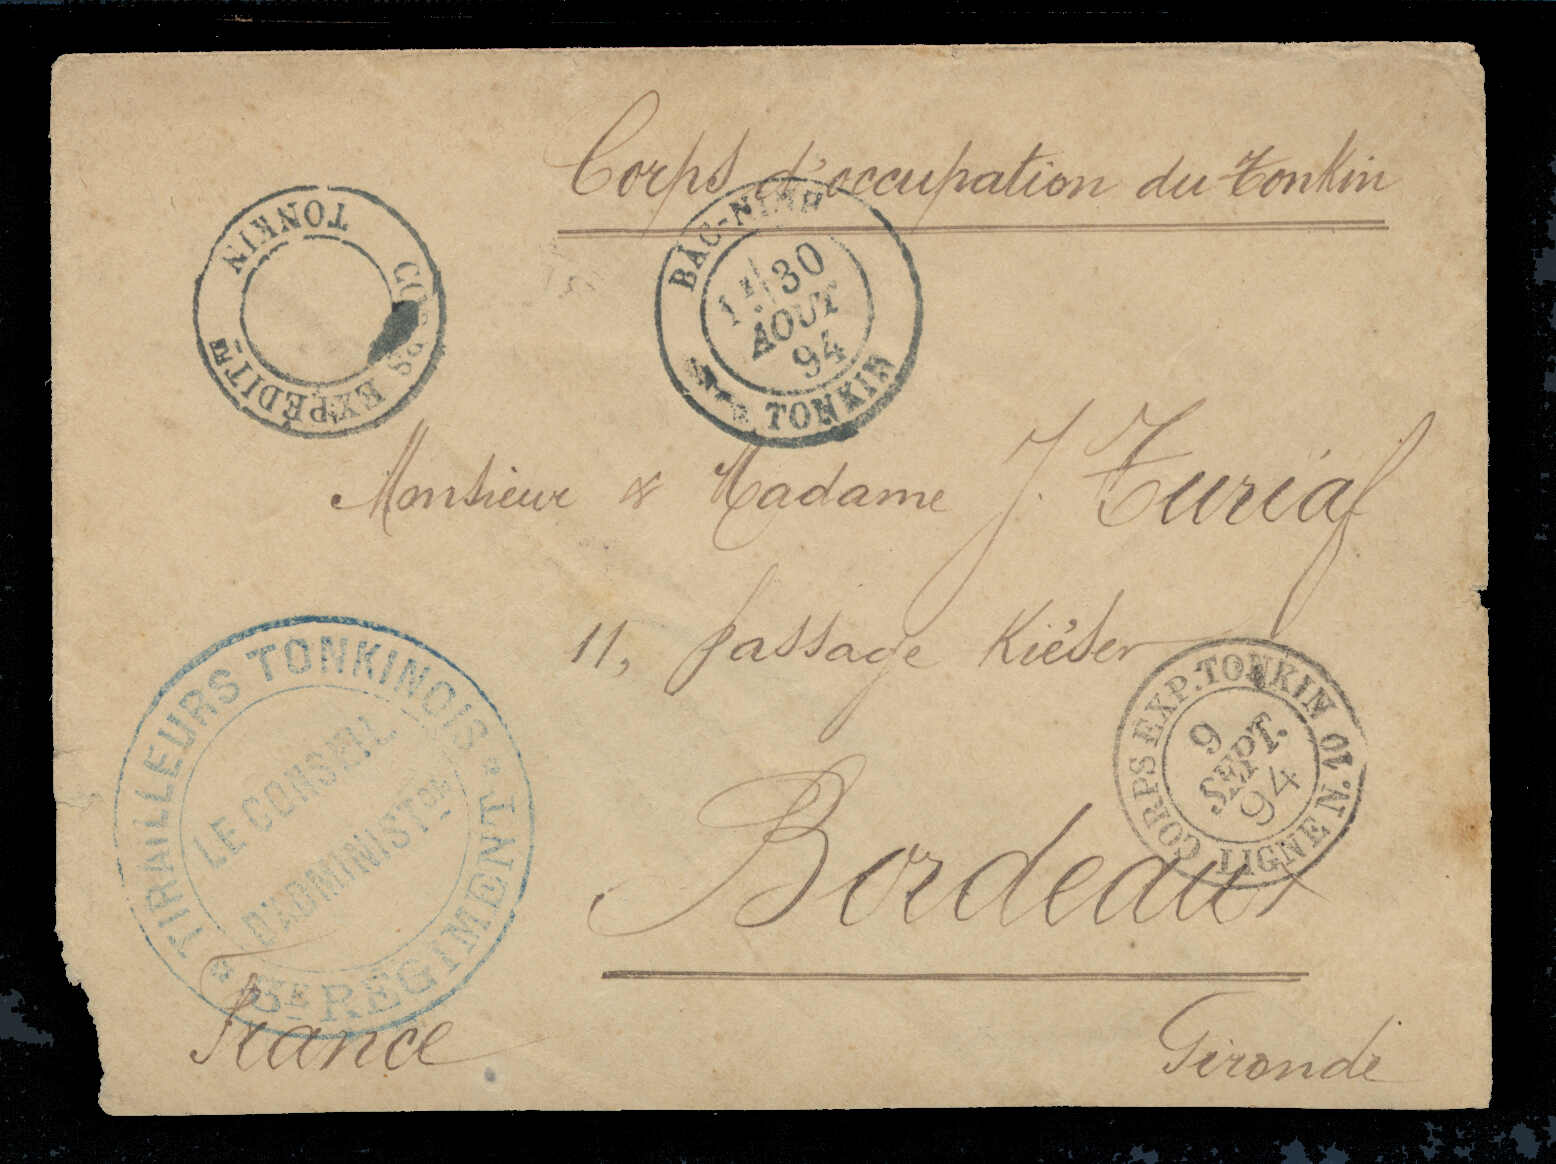 Corps d'occupation du Tonkin
CORPS EXPÉDITRE TONKIN
BAC-NINH
1E 30
AOUT
94
TONKIN
Monsieur & Madame J. Turiaf
11, passage Kiéser
CORPS EXP. TONKIN
9
SEPT.
94
LIGNE N.
TIRAILLEURS TONKINOIS
LE CONSEIL
D'ADMINISTON
RÉGIMENT
Bordeaux
France
Gironde